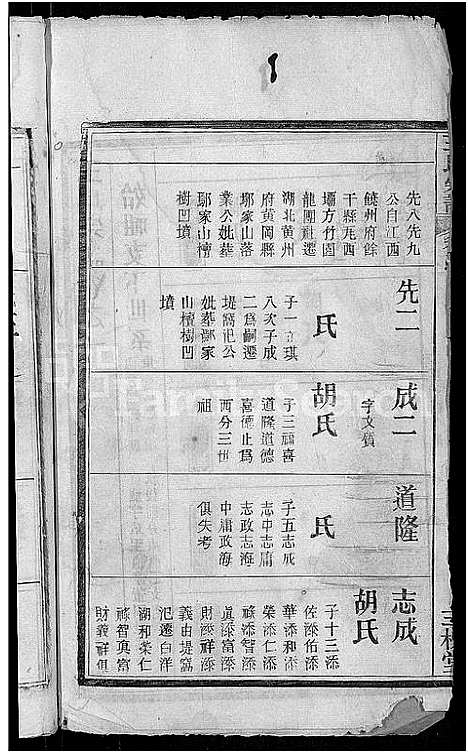 先八先九
公自江西
饒州府餘
干縣瓦西
壩方竹園
龍團社遷
湖北黄州
府黄岡縣
鄢家山落
業公妣葬
鄢家山檀
樹凹墳
先二
氏
子一立琪
八次子成
二爲嗣遷
堤窩汜公
妣葬鄢家
山檀樹凹
墳
成二
字文質
胡氏
子三福喜
道隆道德
喜德止爲
西分三世
祖
道隆
氏
子五志成
志中志庸
志政志海
中肅政海
俱失考
志成
胡氏
子十三添
佐添佑添
華添和添
榮添仁添
祿添智添
眞添富添
財添祥添
義由堤窩
汜遷白洋
湖和榮仁
祿智眞富
財義祥俱